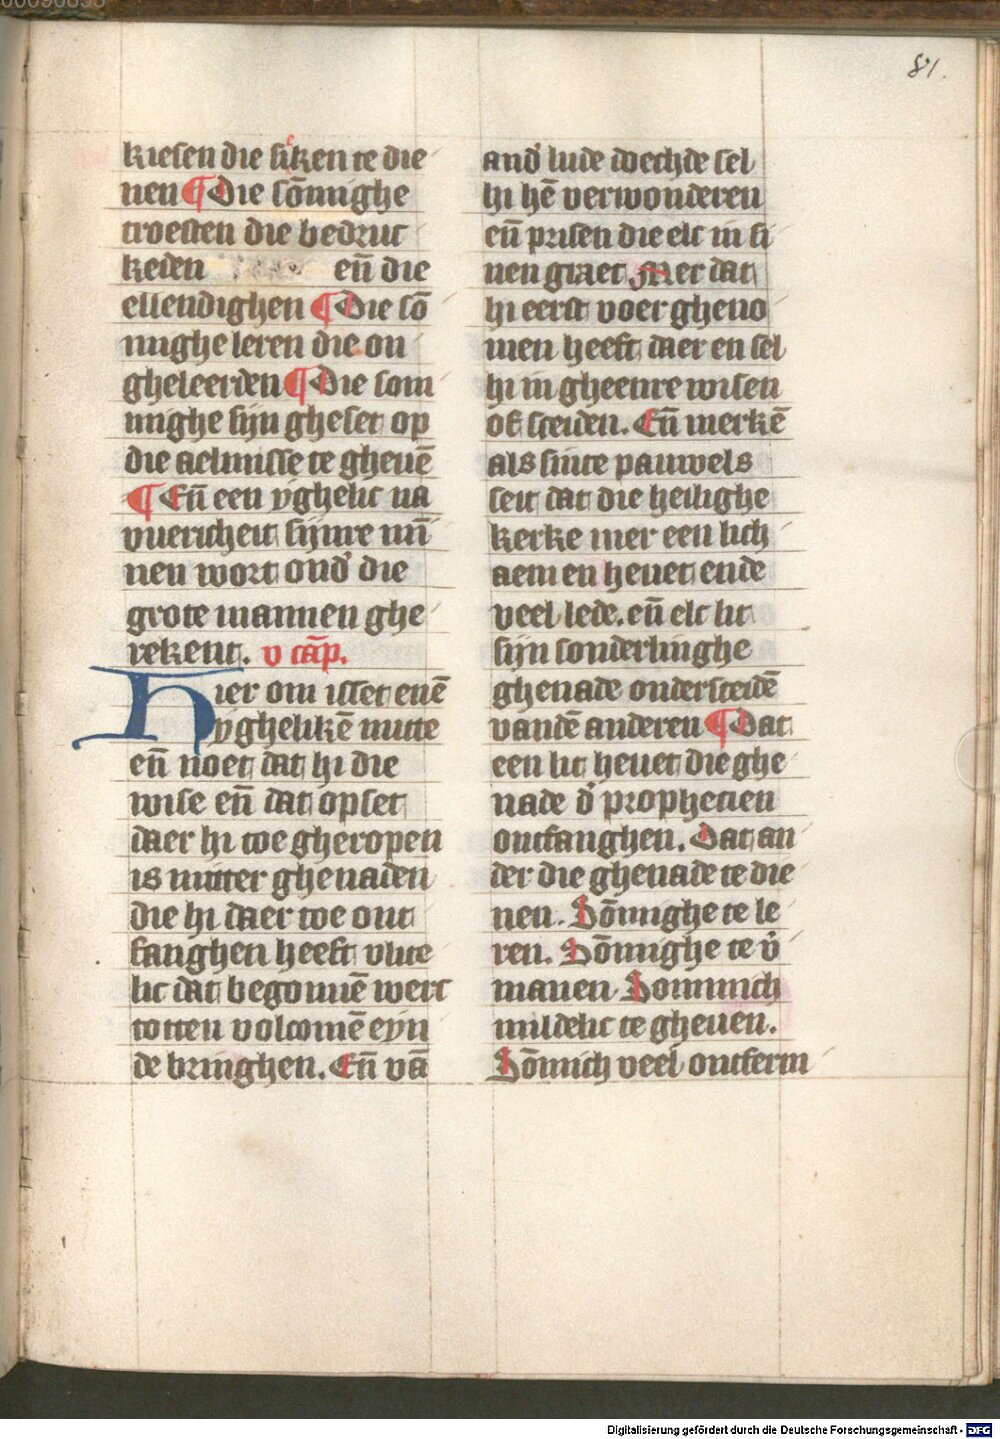 81.
kiesen die siken te die
nen ¶ Die so̅mighe
troesten die bedruc
keden en̅ die
ellendighen ¶ Die so̅
mighe leren die on
gheleerden ¶ Die som
mighe sijn gheset op
die aelmisse te gheue̅
¶ En̅ een yghelic na
vuericheit sijnre mi̅
nen wort ond' die
grote mannen ghe
rekent. v ca̅p.
Hier om isset eue̅
yghelike̅ nutte
en̅ noet dat hi die
wise en̅ dat opset
daer hi toe gheropen
is mitter ghenaden
die hi daer toe ont
fanghen heeft vlite
lic dat begonne̅ werc
totten volcome̅ eyn
de bringhen. En̅ va̅
and' lude doechde sel
hi he̅ verwonderen
en̅ prisen die elc in si
nen graet. Mer dat
hi eerst voer gheno
men heeft daer en sel
hi in gheenre wisen
of sceiden. En̅ merke̅
als sinte pauwels
seit dat die heilighe
kerke mer een lich
aem en heuet ende
veel lede. en̅ elc lit
sijn sonderlinghe
ghenade ondersceide̅
vande̅ anderen ¶ Dat
een lit heuet die ghe
nade d' prophecien
ontfanghen. Dat an
der die ghenade te die
nen. So̅mighe te le
ren. So̅mighe te v'
manen Sommich
mildelic te gheuen.
So̅mich veel ontferm
Digitalisierung gefördert durch die Deutsche Forschungsgemeinschaft - DFG